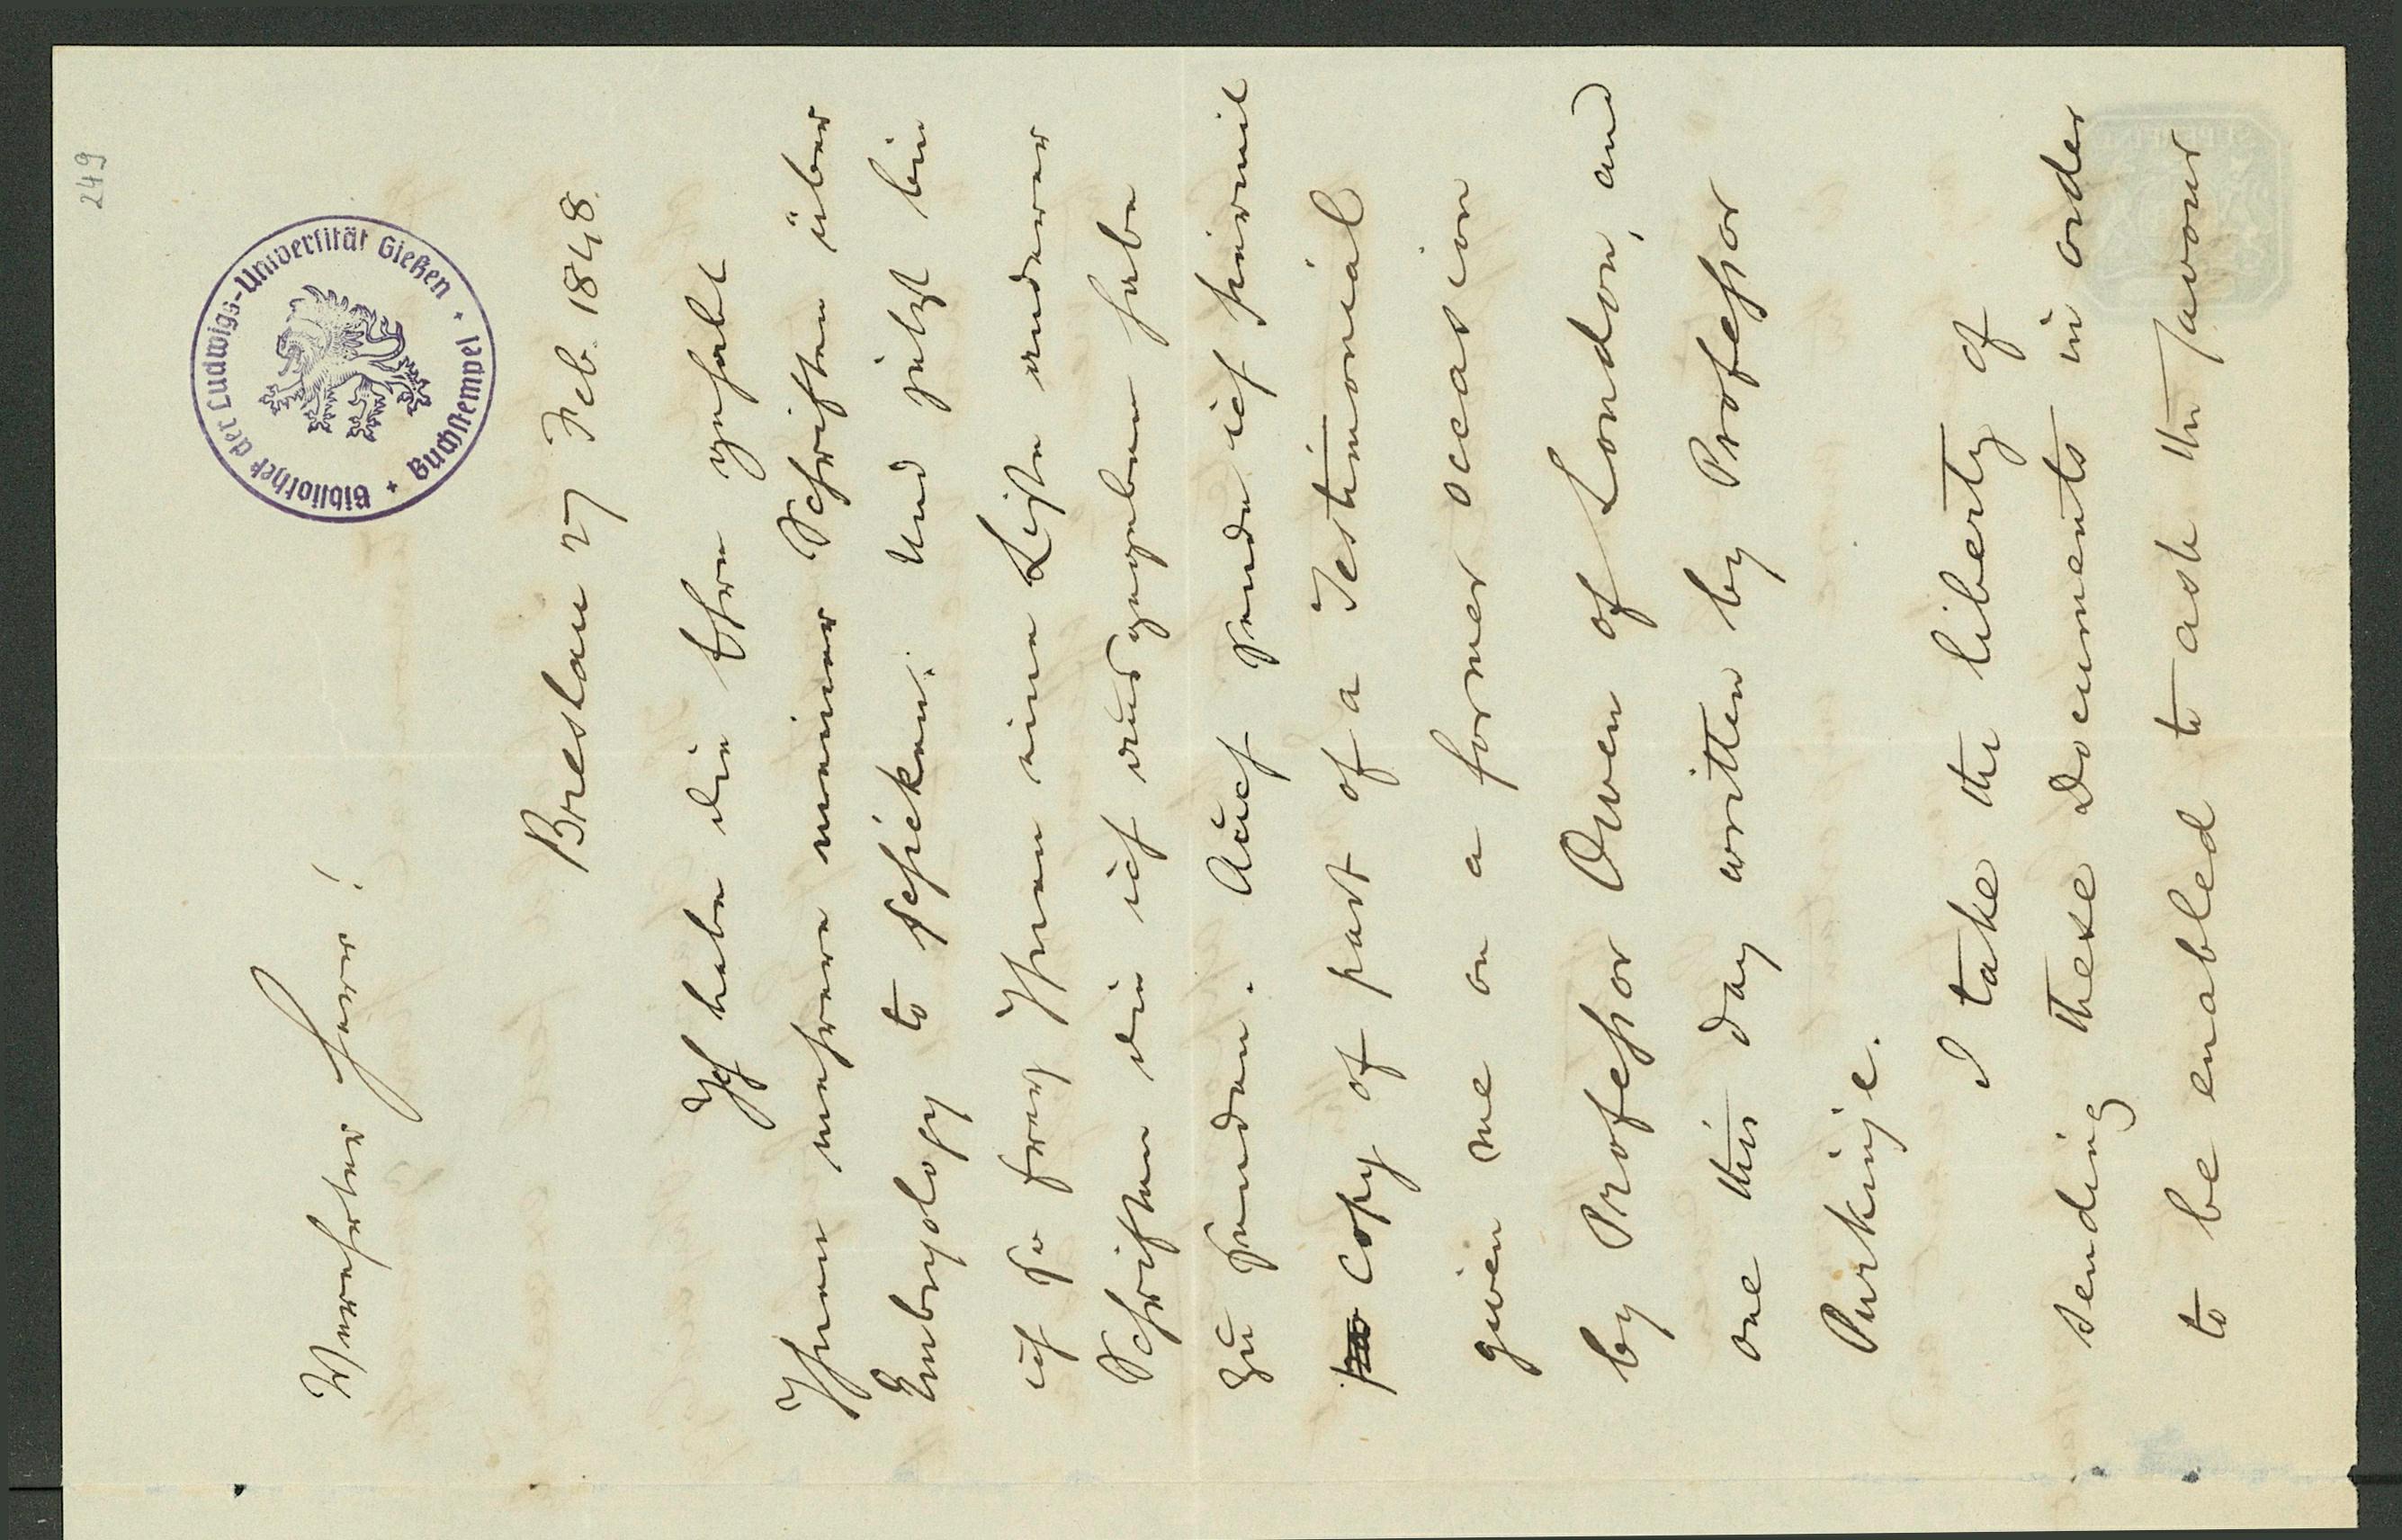 249
Bibliothek der Ludwigs-Universität Gießen
Buchstempel
Verehrter Herr!
Breslau 27 Feb. 1848.
Ich habe die Ehre gehabt
Ihnen mehrere meiner Schriften über
Embryology to schicken. Und jetzt bin
ich so frey Ihnen eine Liste anderer
Schriften die ich ausgegeben habe
zu senden. Auch sende ich hiermit
copy of part of a Testimonial
given me on a former occasion
by Professor Owen of London, and
one this day written by Professor
Purkinje.
I take the liberty of
sending these Documents in order
to be enabled to ask the favour